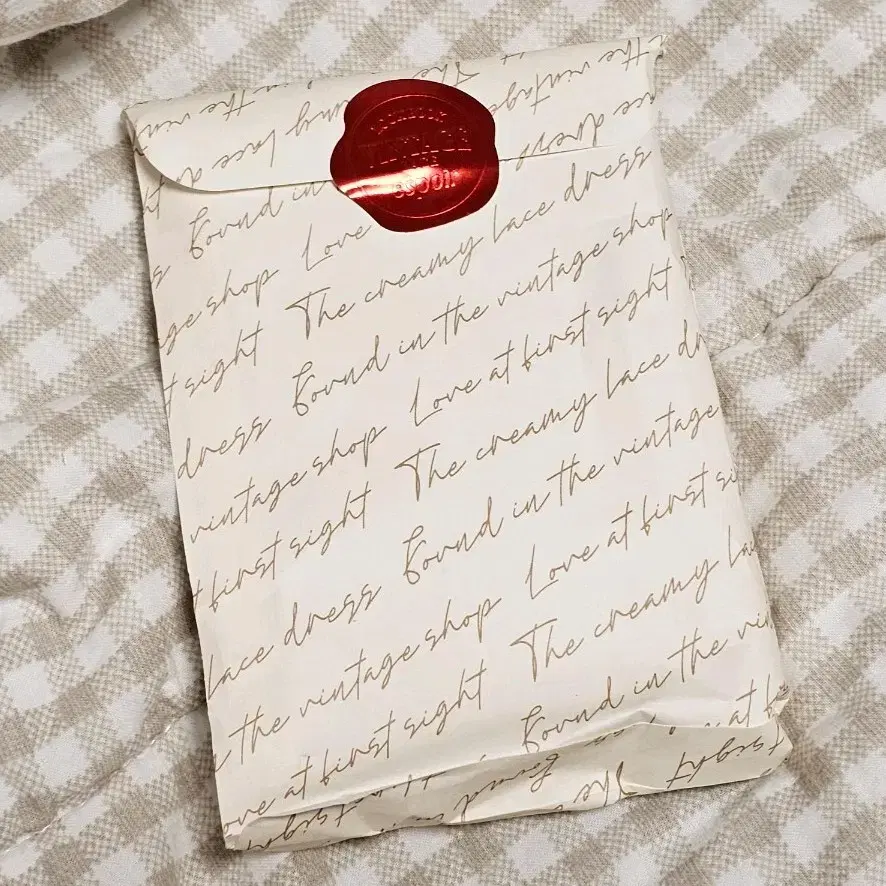 the vintage
The
lace dress
in the vin
VINTAGE
espoir
Found in
ge shop Love
t sight The creamy lace dress
dress Found in the vintage shop
vintage shop Love at first sight
t first sight The creamy lace dr
lace dress Found in the vintage
the vintage shop Love at first si
ove at first sight The creamy la
Found in the vin
at f
t sight
The
found